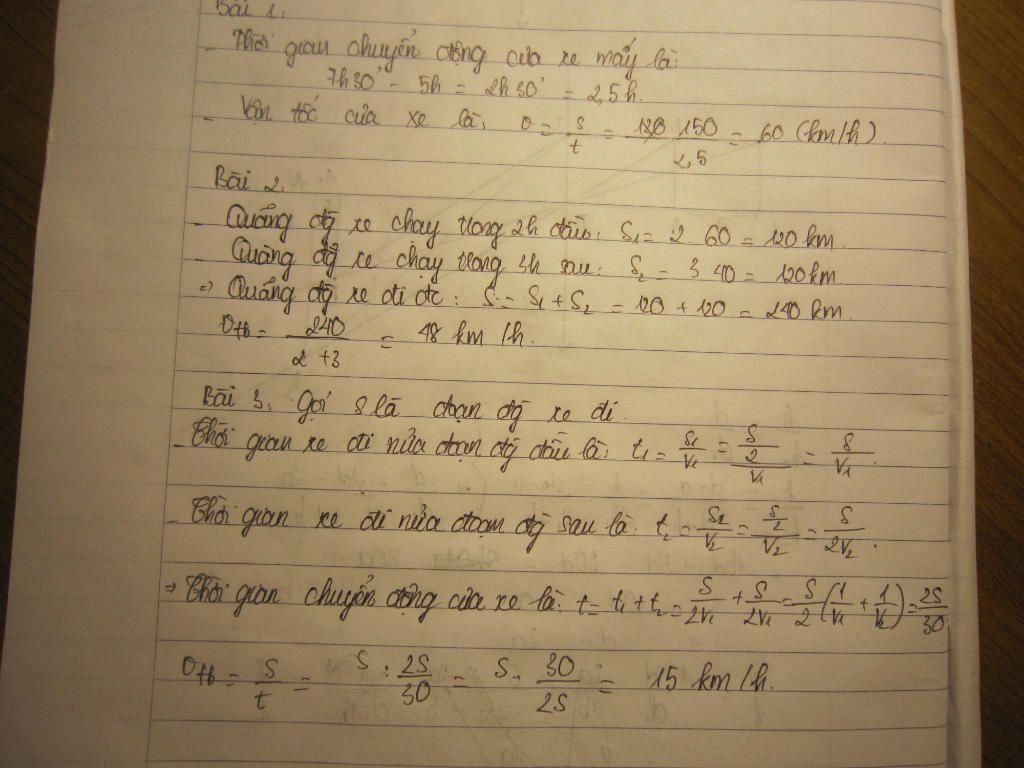 Bài 1.
- Thời gian chuyển động của xe máy là:
7h30' - 5h = 2h30' = 2,5h.
- Vận tốc của xe là: v = s/t = 150/2,5 = 60 (km/h).
Bài 2.
- Quãng đg xe chạy trong 2h đầu: S1 = 2.60 = 120 km.
- Quãng đg xe chạy trong 3h sau: S2 = 3.40 = 120km
=> Quãng đg xe đi đc: S = S1 + S2 = 120 + 120 = 240 km.
vtb = 240/(2+3) = 48 km/h.
Bài 3. Gọi S là đoạn đg xe đi.
- Thời gian xe đi nửa đoạn đg đầu là: t1 = S1/V1 = (S/2)/V1 = S/V1.
- Thời gian xe đi nửa đoạn đg sau là: t2 = S2/V2 = (S/2)/V2 = S/2V2.
=> Thời gian chuyển động của xe là: t = t1 + t2 = S/2V1 + S/2V1 = S/2 (1/V1 + 1/V2) = 2S/30
vtb = S/t = S : 2S/30 = S . 30/2S = 15 km/h.